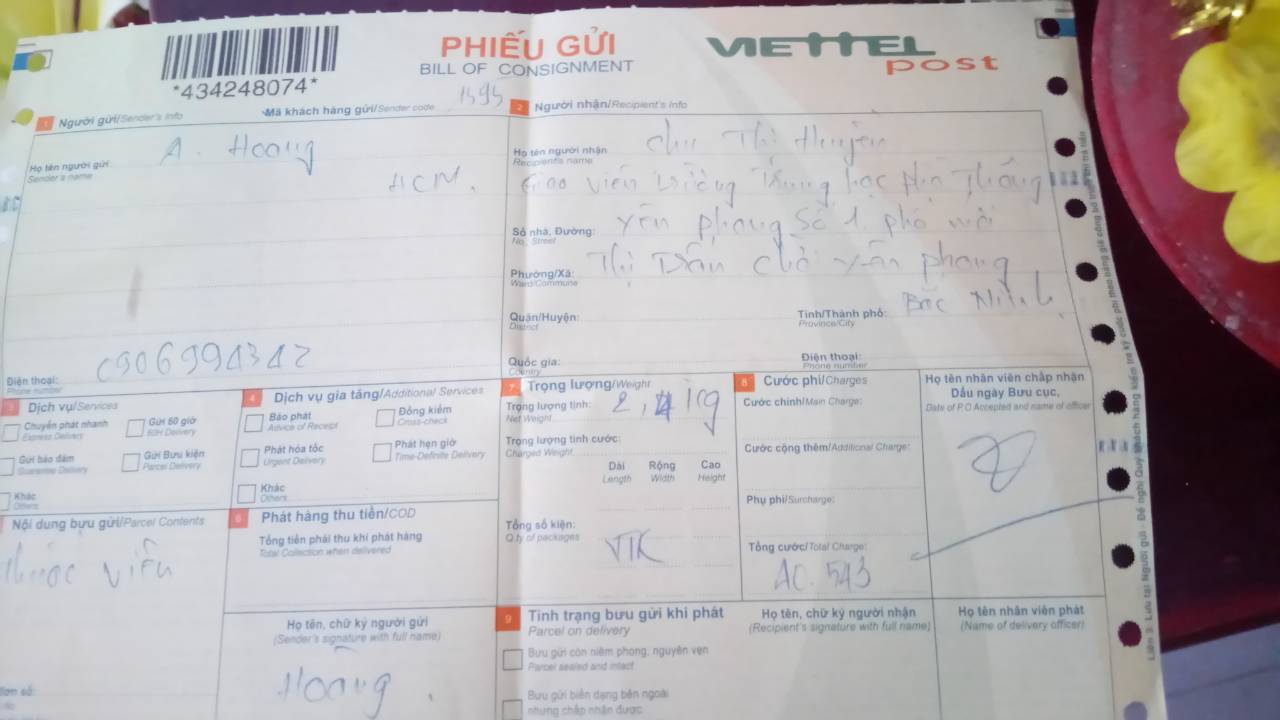 PHIẾU GỬI
BILL OF CONSIGNMENT
VIETTEL
post
*434248074*
1 Người gửi/Sender's Info
Mã khách hàng gửi/Sender code
2 Người nhận/Recipient's Info
Họ tên người gửi:
Sender's name
A. Hoàng
HCM.
Họ tên người nhận
Recipient's name
Chu Thị Huyền
Giáo viên trường Trung học
Thông
Số nhà, Đường:
No., Street
Yên phong số 1. phố mới
Phường/Xã:
Ward/Commune
Thị Trấn chờ yên phong
Quận/Huyện:
District
Tỉnh/Thành phố:
Province/City
Bắc Ninh
Quốc gia:
Country
Điện thoại:
Phone number
Điện thoại:
Phone number
3 Dịch vụ/Services
Chuyển phát nhanh
Express Delivery
Gửi 60 giờ
60H Delivery
Gửi bảo đảm
Guarantee Delivery
Gửi Bưu kiện
Parcel Delivery
Khác
Others
4 Dịch vụ gia tăng/Additional Services
Báo phát
Advice of Receipt
Đồng kiểm
Cross-check
Phát hỏa tốc
Urgent Delivery
Phát hẹn giờ
Time-Definite Delivery
Khác
Others
Nội dung bưu gửi/Parcel Contents
thuốc viên
6 Phát hàng thu tiền/COD
Tổng tiền phải thu khi phát hàng
Total Collection when delivered
7 Trọng lượng/Weight
Trọng lượng tịnh:
Net Weight
Trọng lượng tính cước:
Charged Weight:
Dài Rộng Cao
Length Width Height
Tổng số kiện:
Q.ty of packages
VTK
8 Cước phí/Charges
Cước chính/Main Charge:
Cước cộng thêm/Additional Charge:
Phụ phí/Surcharge:
Tổng cước/Total Charge:
40.543
Họ tên nhân viên chấp nhận
Dấu ngày Bưu cục,
Date of P.O Accepted and name of officer
Họ tên, chữ ký người gửi
(Sender's signature with full name)
Hoàng
9 Tình trạng bưu gửi khi phát
Parcel on delivery
Bưu gửi còn niêm phong, nguyên vẹn
Parcel sealed and intact
Bưu gửi biến dạng bên ngoài
nhưng chấp nhận được
Họ tên, chữ ký người nhận
(Recipient's signature with full name)
Họ tên nhân viên phát
(Name of delivery officer)